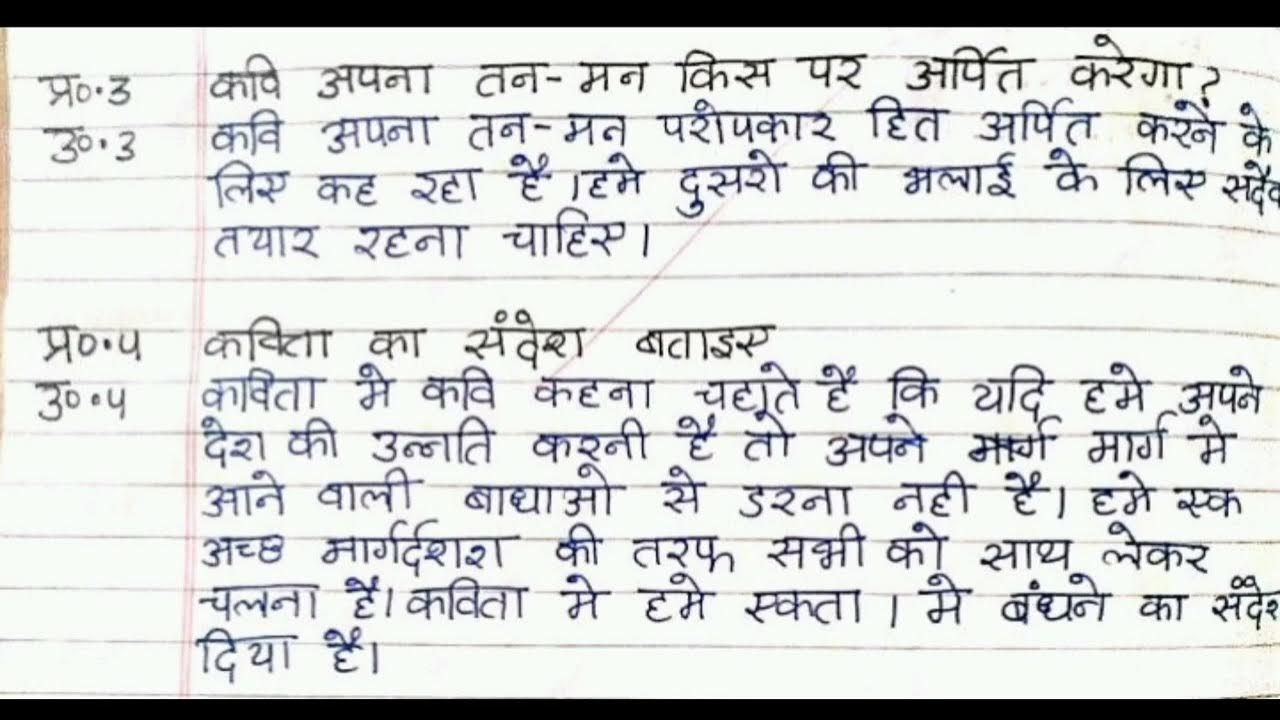 प्र०.3 कवि अपना तन-मन किस पर अर्पित करेगा?
उ०.3 कवि अपना तन-मन परोपकार हित अर्पित करने के
लिए कह रहा है। हमे दुसरो की भलाई के लिए सदैव
तयार रहना चाहिए।
प्र०.4 कविता का संदेश बताइए
उ०.4 कविता मे कवि कहना चहाते है कि यदि हमे अपने
देश की उन्नति करनी है तो अपने मार्ग मे
आने वाली बाधाओ से डरना नही है। हमे एक
अच्छ मार्गर्दशश की तरफ सभी को साथ लेकर
चलना है। कविता मे हमे एकता । मे बंधने का संदेश
दिया है।